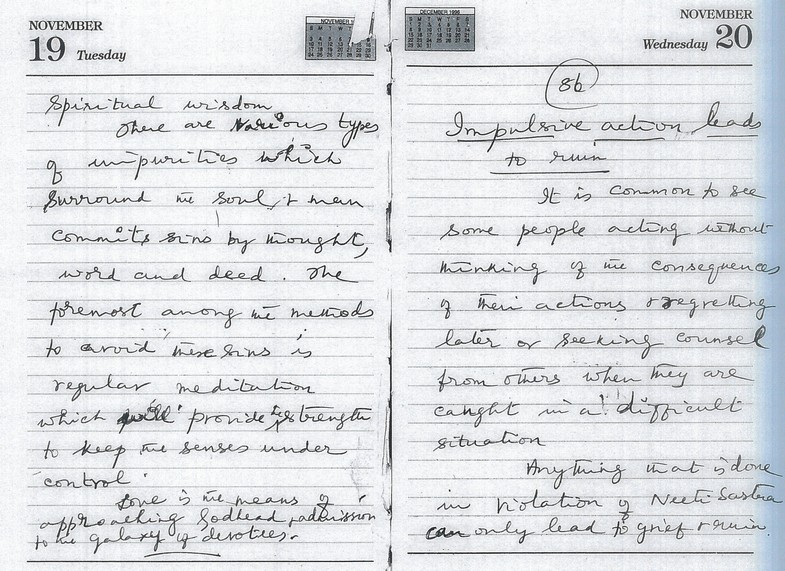 NOVEMBER
19 Tuesday
Spiritual wisdom
There are various types
of impurities which
surround the soul, & man
commits sins by thought,
word and deed. The
foremost among the methods
to avoid these sins is
regular meditation
which will provide strength
to keep the senses under
control.
Love is the means of
approaching Godhead, admission
to the galaxy of devotees.
NOVEMBER
Wednesday 20
DECEMBER 1996
86
Impulsive action leads
to ruin
It is common to see
some people acting without
thinking of the consequences
of their actions & regretting
later or seeking counsel
from others when they are
caught in a difficult
situation
Anything that is done
in violation of Neeti Sastra
can only lead to grief & ruin.